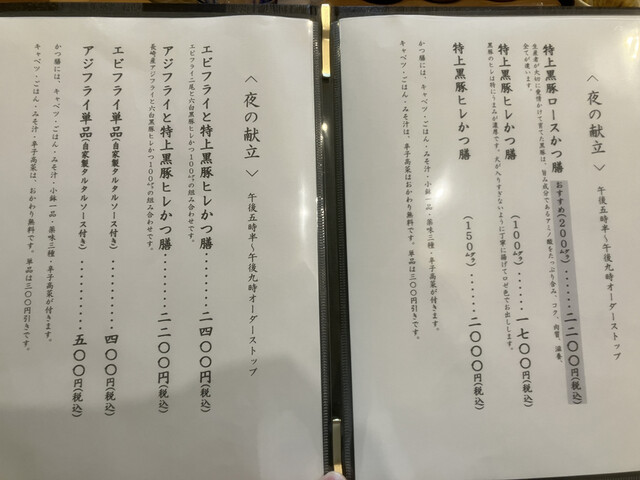 〈 夜の献立 〉 午後五時半〜午後九時オーダーストップ
特上黒豚ロースかつ膳 おすすめ(200㌘)・・・・・・・二二〇〇円(税込)
生産者が大切に愛情かけて育てた黒豚は、旨み成分であるアミノ酸をたっぷり含み、コク、肉質、滋養、
全てが違います。
特上黒豚ヒレかつ膳 (100㌘)・・・・・・・一七〇〇円(税込)
黒豚のヒレは特にうまみが濃厚です。火が入りすぎないように丁寧に揚げてロゼ色でお出しします。
特上黒豚ヒレかつ膳 (150㌘)・・・・・・・二〇〇〇円(税込)
かつ膳には、キャベツ・ごはん・みそ汁・小鉢一品・薬味三種・辛子高菜が付きます。
キャベツ・ごはん・みそ汁・辛子高菜は、おかわり無料です。単品は三〇〇円引きです。
〈 夜の献立 〉 午後五時半〜午後九時オーダーストップ
エビフライと特上黒豚ヒレかつ膳・・・・・・・二四〇〇円(税込)
エビフライ二尾と六白黒豚ヒレかつ100㌘の組み合わせです。
アジフライと特上黒豚ヒレかつ膳・・・・・・・二二〇〇円(税込)
長崎産アジフライと六白黒豚ヒレかつ100㌘の組み合わせです。
エビフライ単品(自家製タルタルソース付き)・・・・・・・四〇〇円(税込)
アジフライ単品(自家製タルタルソース付き)・・・・・・・五〇〇円(税込)
かつ膳には、キャベツ・ごはん・みそ汁・小鉢一品・薬味三種・辛子高菜が付きます。
キャベツ・ごはん・みそ汁・辛子高菜は、おかわり無料です。単品は三〇〇円引きです。